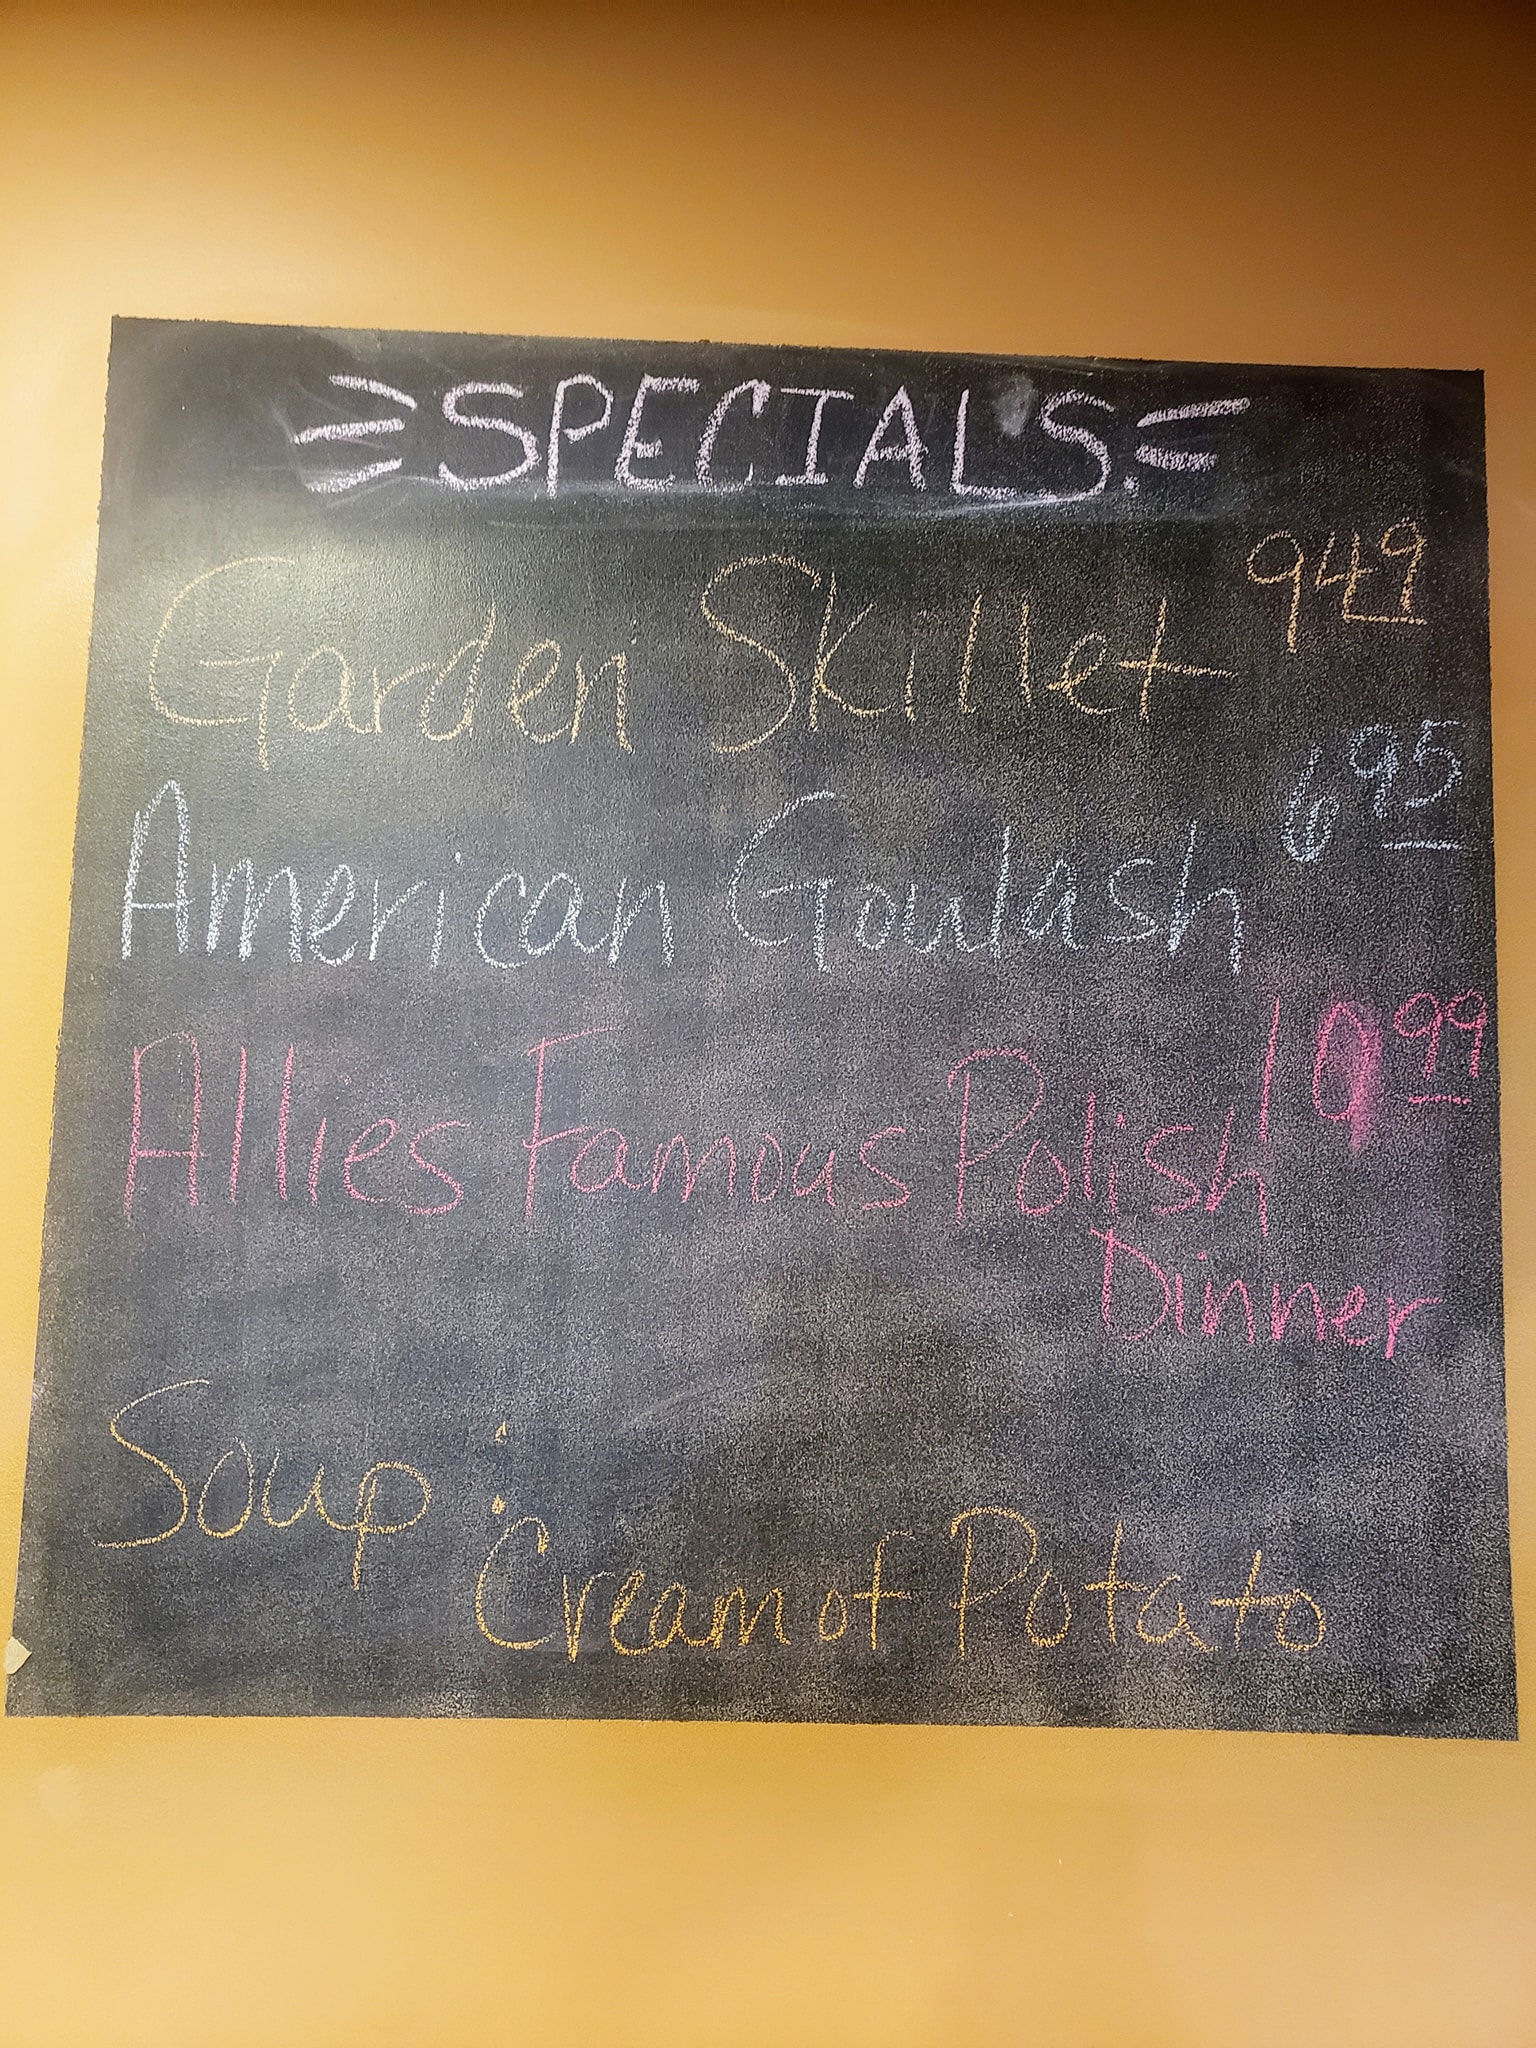 SPECIALS.
Garden Skillet 949
American Goulash 695
Allies Famous Polish 1099
Dinner
Soup:
Cream of Potato